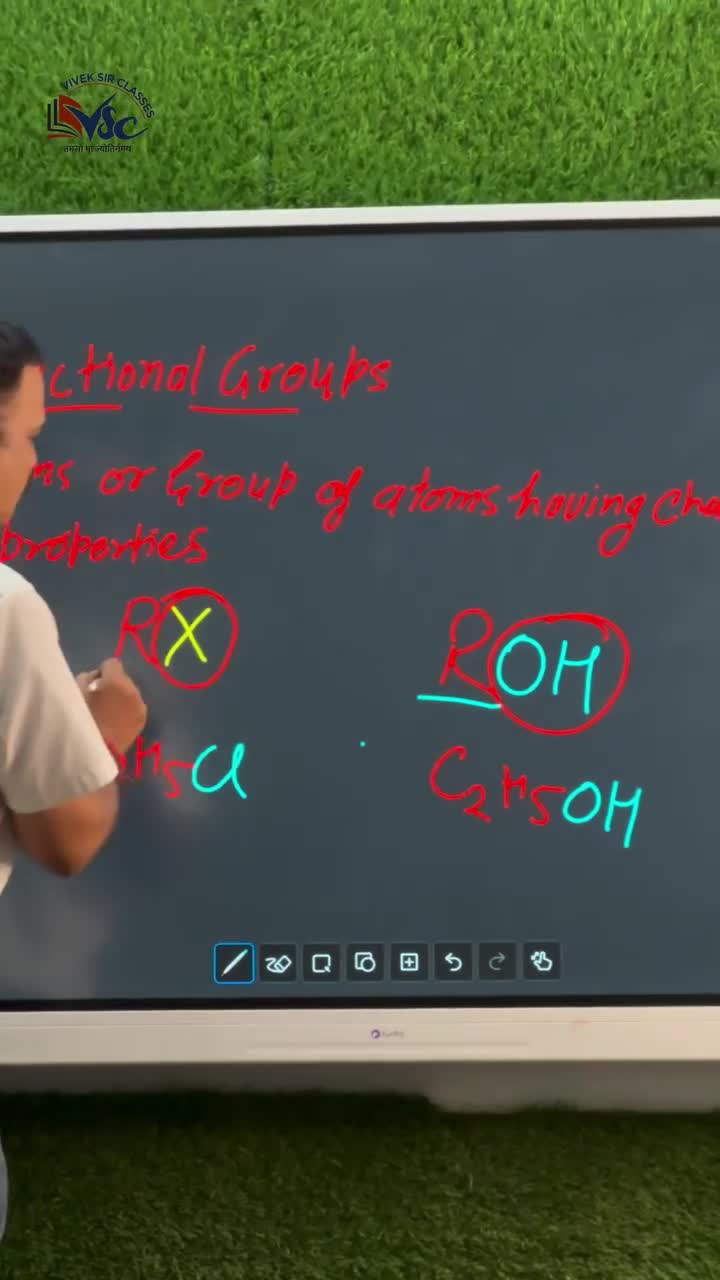 VIVEK SIR CLASSES
VSC
तमसो मा ज्योतिर्गमय
ctional Groups
ms or Group of atoms having Cha
properties
RX
ROH
2H5Cl
C2H5OH